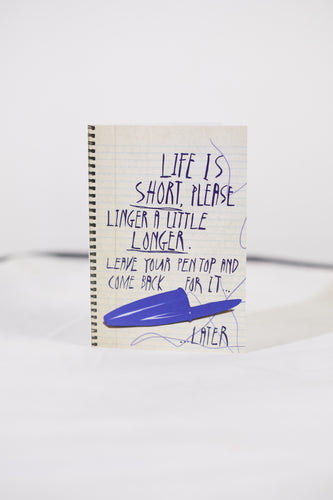 LIFE IS
SHORT, PLEASE
LINGER A LITTLE
LONGER.
LEAVE YOUR PEN TOP AND
COME BACK FOR IT...
...LATER